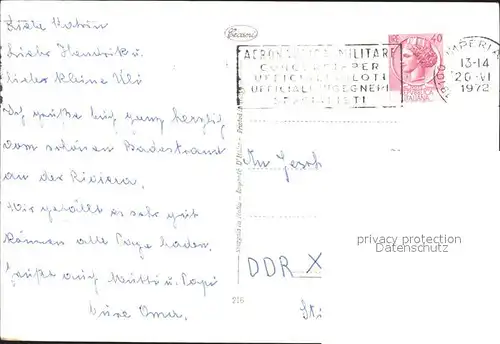 Liebe Katrin
Lieber Hendrik u.
lieber kleine Uli
Ich grüße Euch ganz herzlich
vom schönen Badestrand
an der Riviera.
Mir gefällt es sehr gut
können alle Tage baden.
Grüße auch Mutti u. Papi
Eure Oma.
216
AERONAUTICA MILITARE
CONCORSI PER
UFFICIALI PILOTI
UFFICIALI INGEGNERI
SPECIALISTI
LIRE 40
IMPERIA
13-14
20-VI
1972
18100
An Gesch
DDR X
privacy protection
Datenschutz